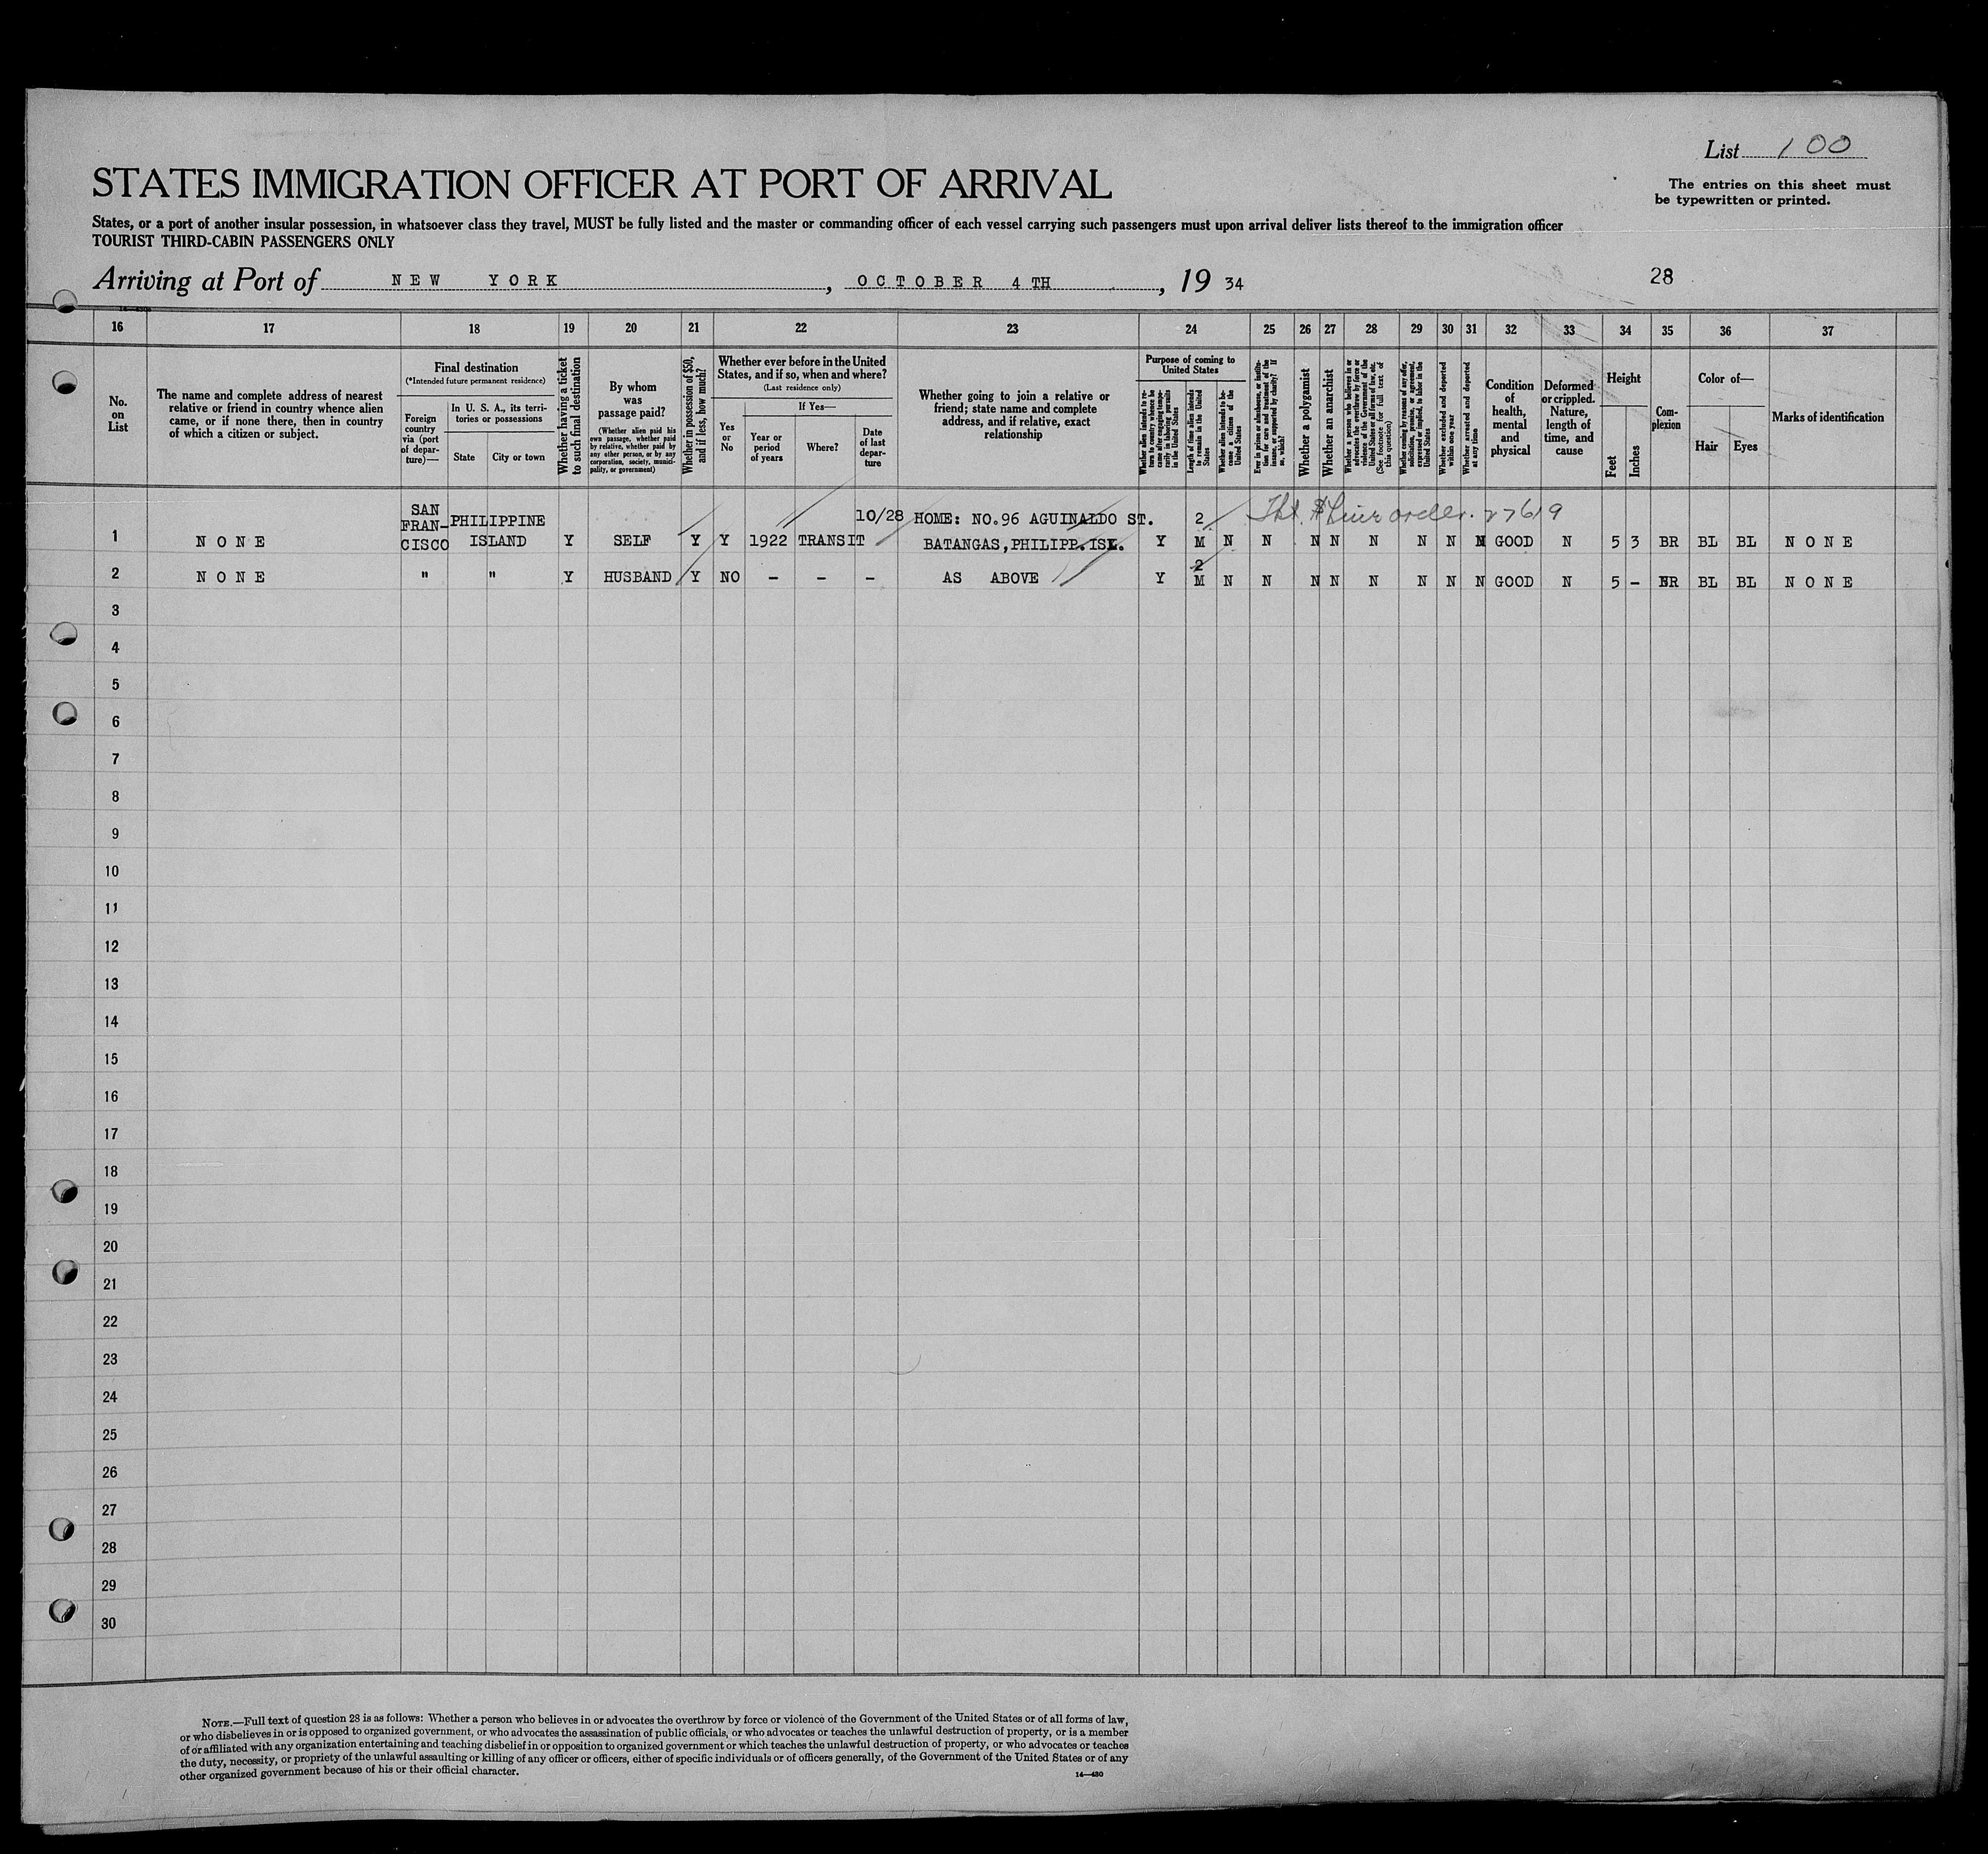 List 100
STATES IMMIGRATION OFFICER AT PORT OF ARRIVAL
The entries on this sheet must
be typewritten or printed.
States, or a port of another insular possession, in whatsoever class they travel, MUST be fully listed and the master or commanding officer of each vessel carrying such passengers must upon arrival deliver lists thereof to the immigration officer
TOURIST THIRD-CABIN PASSENGERS ONLY
Arriving at Port of NEW YORK, OCTOBER 4 TH, 19 34
28
16 17 18 19 20 21 22 23 24 25 26 27 28 29 30 31 32 33 34 35 36 37
No.
on
List
The name and complete address of nearest
relative or friend in country whence alien
came, or if none there, then in country
of which a citizen or subject.
Final destination
(*Intended future permanent residence)
Foreign
country
via (port
of depar-
ture)—
In U. S. A., its terri-
tories or possessions
State City or town
Whether having a ticket
to such final destination
By whom
was
passage paid?
(Whether alien paid his
own passage, whether paid
by relative, whether paid by
any other person, or by any
corporation, society, munici-
pality, or government)
Whether in possession of $50,
and if less, how much?
Whether ever before in the United
States, and if so, when and where?
(Last residence only)
Yes
or
No
If Yes—
Year or
period
of years
Where?
Date
of last
depar-
ture
Whether going to join a relative or
friend; state name and complete
address, and if relative, exact
relationship
Purpose of coming to
United States
Whether alien intends to re-
turn to country whence he
came after engaging tempo-
rarily in laboring pursuits
in the United States
Length of time alien intends
to remain in the United
States
Whether alien intends to be-
come a citizen of the
United States
Ever in prison or almshouse, or institu-
tion for care and treatment of the
insane, or supported by charity? If
so, which?
Whether a polygamist
Whether an anarchist
Whether a person who believes in or
advocates the overthrow by force or
violence of the Government of the
United States or all forms of law, etc.
(See footnote for full text of
this question)
Whether coming by reasons of any offer,
solicitation, promise, or agreement,
expressed or implied, to labor in the
United States
Whether excluded and deported
within one year
Whether arrested and deported
at any time
Condition
of
health,
mental
and
physical
Deformed
or crippled.
Nature,
length of
time, and
cause
Height
Feet
Inches
Com-
plexion
Color of—
Hair Eyes
Marks of identification
SAN
FRAN-
CISCO
PHILIPPINE
ISLAND
10/28 HOME: NO.96 AGUINALDO ST. 2 27619
1 NONE Y SELF Y Y 1922 TRANSIT BATANGAS,PHILIPP.ISL. Y M N N N N N N N N GOOD N 5 3 BR BL BL NONE
2
2 NONE " " Y HUSBAND Y NO - - - AS ABOVE Y M N N N N N N N N GOOD N 5 - BR BL BL NONE
3
4
5
6
7
8
9
10
11
12
13
14
15
16
17
18
19
20
21
22
23
24
25
26
27
28
29
30
NOTE.—Full text of question 28 is as follows: Whether a person who believes in or advocates the overthrow by force or violence of the Government of the United States or of all forms of law,
or who disbelieves in or is opposed to organized government, or who advocates the assassination of public officials, or who advocates or teaches the unlawful destruction of property, or is a member
of or affiliated with any organization entertaining and teaching disbelief in or opposition to organized government or which teaches the unlawful destruction of property, or who advocates or teaches
the duty, necessity, or propriety of the unlawful assaulting or killing of any officer or officers, either of specific individuals or of officers generally, of the Government of the United States or of any
other organized government because of his or their official character.
14—430